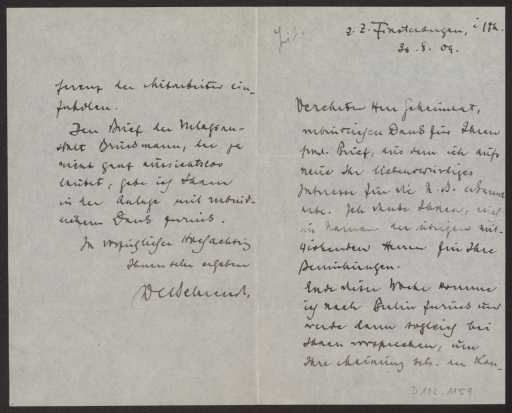 z. Z. Finsterbergen, i./Th.
30. 8. 09.
Verehrter Herr Geheimrat,
verbindlichsten Dank für Ihren
frndl. Brief, aus dem ich aufs
neue Ihr liebenswürdiges
Interesse für die N. D. erkannt
habe. Ich danke Ihnen, auch
im Namen der übrigen mit-
wirkenden Herren für Ihre
Bemühungen.
Ende dieser Woche komme
ich nach Berlin zurück und
werde dann sogleich bei
Ihnen vorsprechen, um
Ihre Meinung betr. der Kon-
ferenz der Mitarbeiter ein-
zuholen.
Den Brief der Verlagsan-
stalt Bruckmann, der ja
nicht ganz aussichtslos
lautet, gebe ich Ihnen
in der Anlage mit verbind-
lichem Dank zurück.
In vorzüglicher Hochachtung
Ihnen sehr ergeben
Behrendt.
D 102. 1159